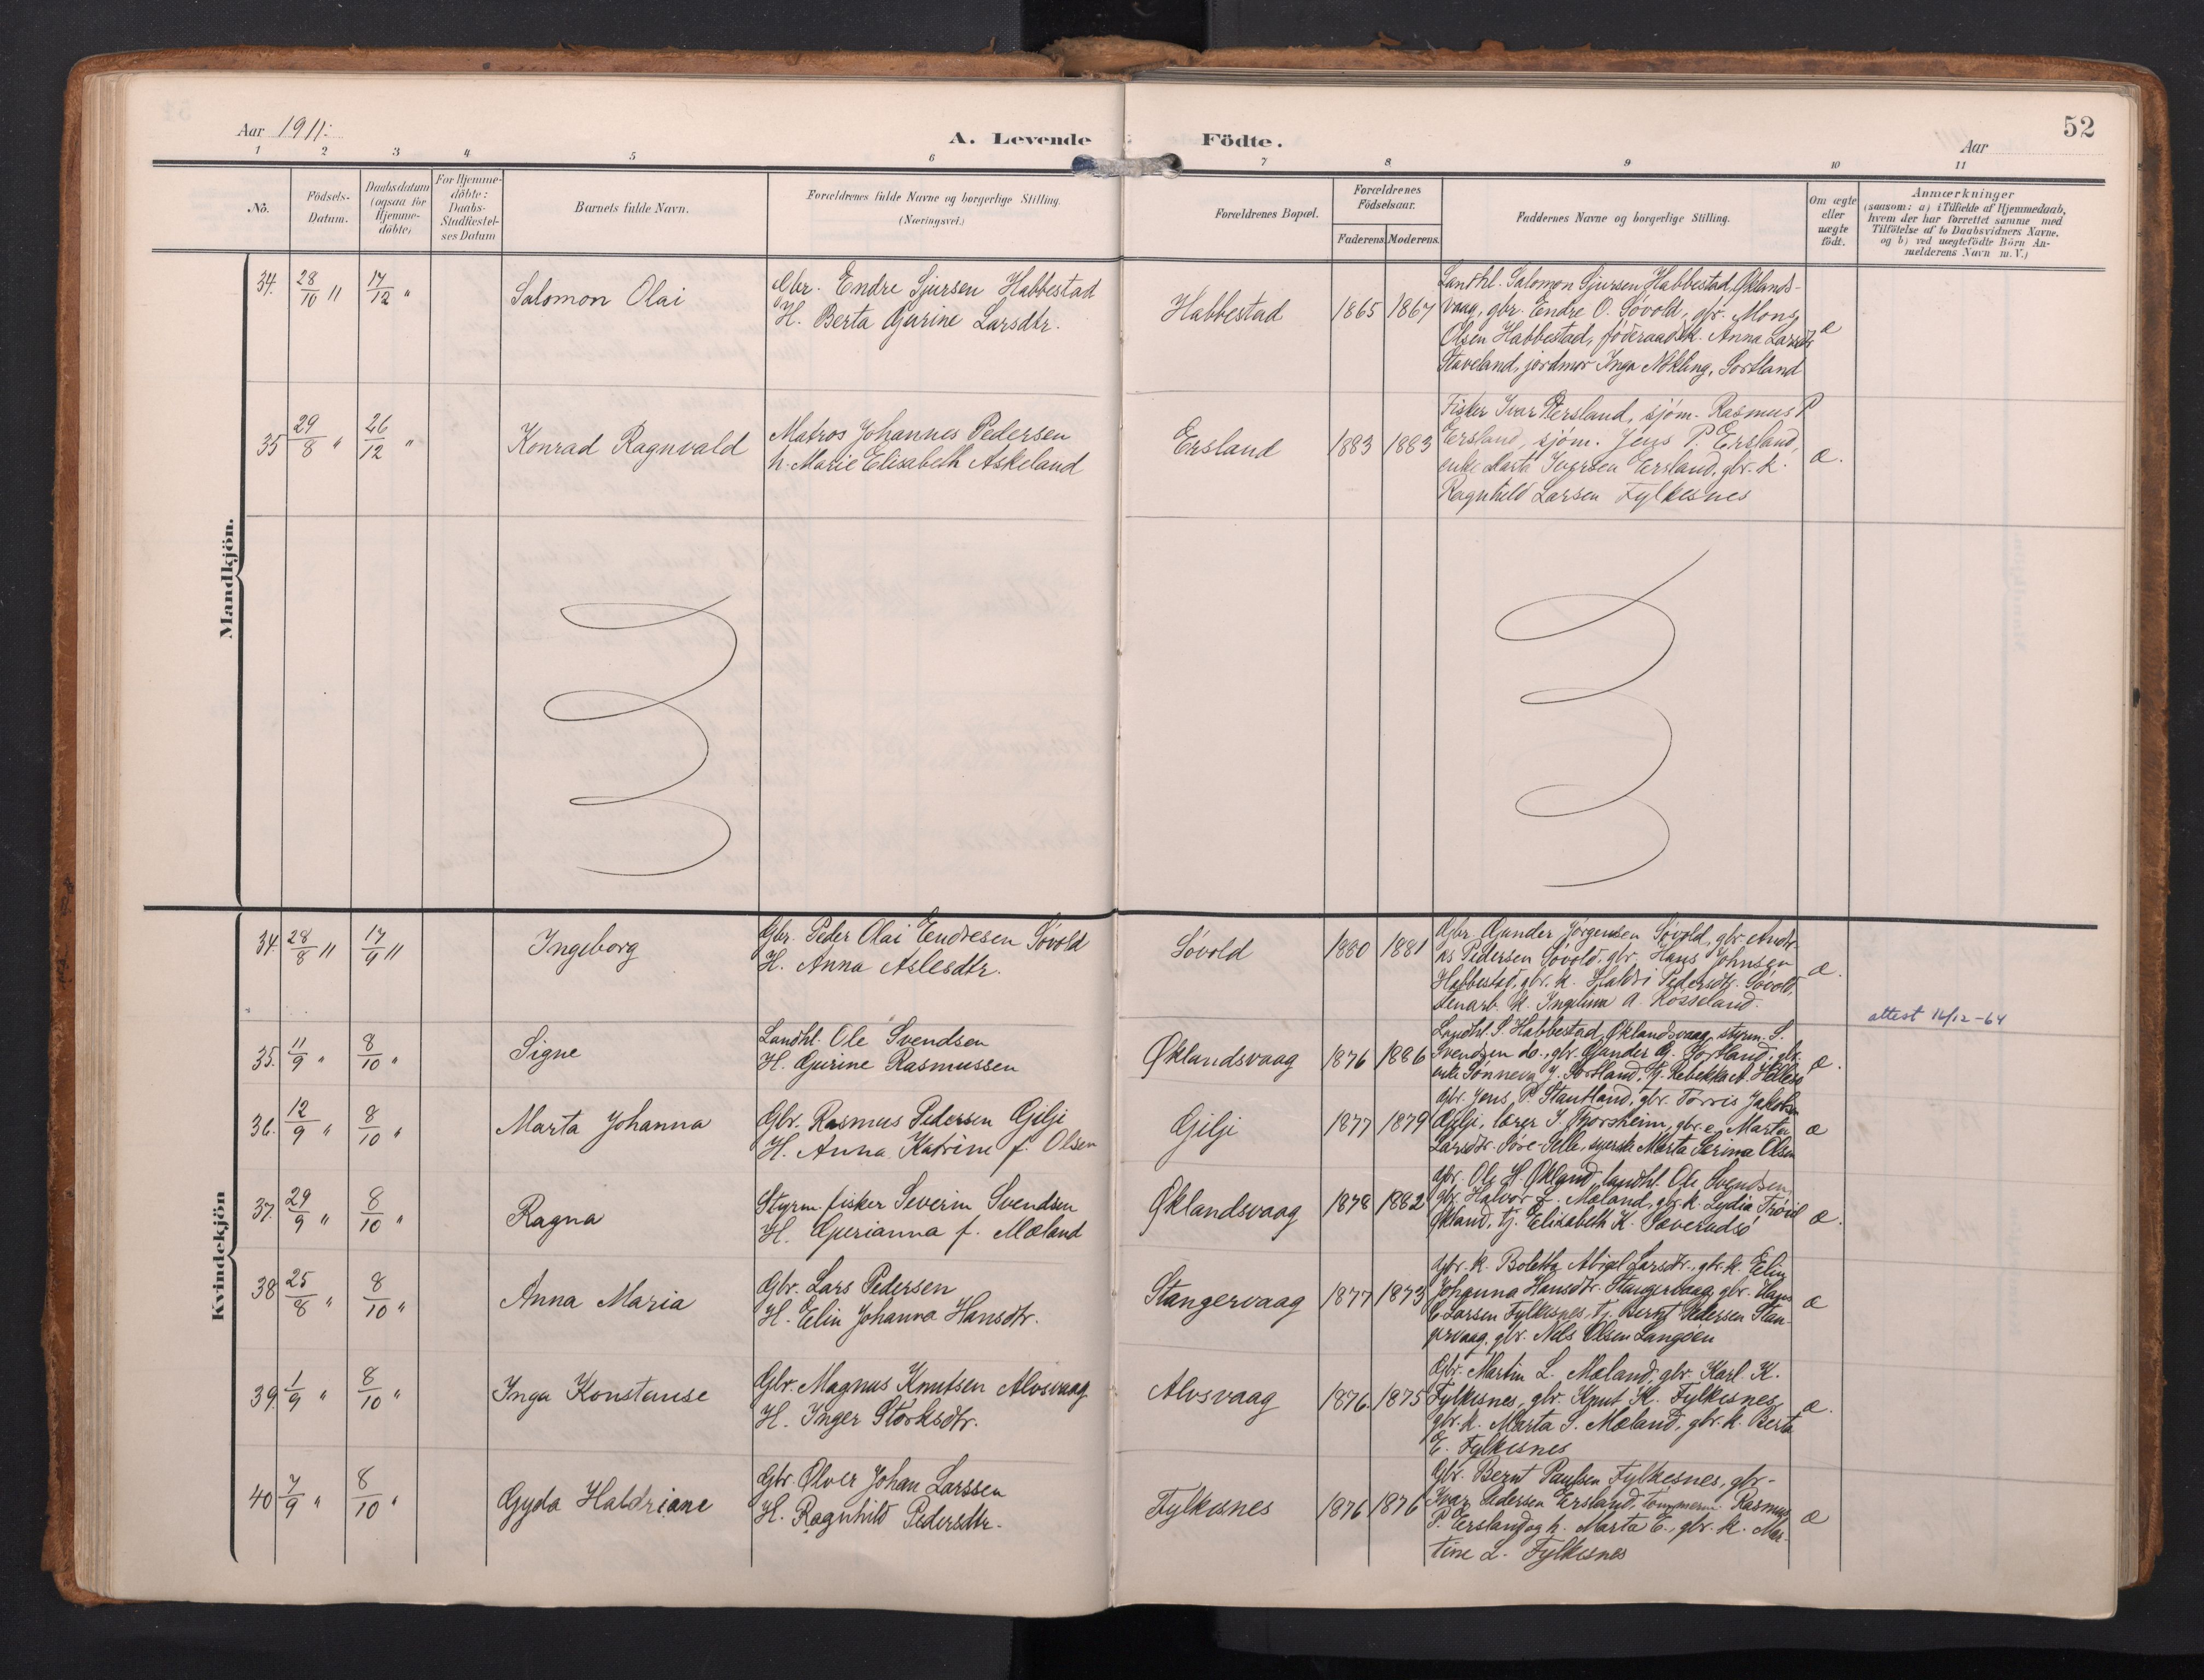 Aar 1911.
A. Levende Födte.
52
Aar
1 2 3 4 5 6 7 8 9 10 11
No.
Födsels-Datum.
Daabsdatum (ogsaa for Hjemme-döbte)
For Hjemme-döbte: Daabs-Stadfæstel-ses Datum
Barnets fulde Navn.
Forældrenes fulde Navne og borgerlige Stilling. (Næringsvei.)
Forældrenes Bopæl.
Forældrenes Födselsaar.
Faderens. Moderens.
Faddernes Navne og borgerlige Stilling.
Om ægte eller uægte födt.
Anmærkninger
(saasom: a) i Tilfælde af Hjemmedaab,
hvem der har forrettet samme med
Tilföielse af to Daabsvidners Navne.
og b) ved uægtefödte Börn An-
melderens Navn m. V.)
Mandkjön.
34. 28/10 " 17/12 " Salomon Olai
Gbr. Endre Sjursen Habbestad
H. Berta Gurine Larsdtr.
Habbestad 1865 1867
Landhl. Salomon Sjursen Habbestad, Øklands-
vaag, gbr. Endre O. Søvold, gbr. Mons
Olsen Habbestad, føderaadsk. Anna Larsdtr
Staveland, jordmor Inga Nökling, Sortland
æ
35 29/8 " 26/12 " Konrad Ragnvald
Matros Johannes Pedersen
h. Marie Elisabeth Askeland
Ersland 1883 1883
Fisker Ivar Ersland, sjøm. Rasmus P
Ersland, sjøm. Jens P. Ersland,
enke Marta Ivarsen Ersland, gbr. k.
Ragnhild Larsen Fylkesnes
æ.
Kvindekjön
34. 28/8 " 17/9 " Ingeborg
Gbr. Peder Olai Endresen Søvold
H. Anna Aslesdtr.
Søvold 1880 1881
Gbr. Gunder Jørgensen Søvold, gbr. Andr-
as Pedersen Søvold, gbr. Hans Johnsen
Habbestad, gbr. k. Haldri Pedersdtr. Søvold,
stenarb. k. Ingelina A. Rosseland.
æ.
35. 11/9 " 8/10 " Signe
Landhl. Ole Svendsen
H. Gurine Rasmussen
Øklandsvaag 1876 1886
Landhl. S. Habbestad, Øklandsvaag, styrm. S.
Svendsen do., gbr. Gunder G. Sortland, gbr.
enke Sønneva J. Sortland, tj. Rebekka A. Hellesø
æ.
attest 16/12-64
36. 12/9 " 8/10 " Marta Johanna
Gbr. Rasmus Pedersen Gilji
H. Anna Katrine f. Olsen
Gilji 1877 1879
Gbr. Jens P. Stautland, gbr. Torris Jakobsen
Gilji, lærer S. Thorsheim, gbr. e. Marta
Larsdtr. Søre-Selle, syerske Marta Serina Olsen
æ
37. 29/9 " 8/10 " Ragna
Styrm. fisker Severin Svendsen
H. Gurianna f. Mæland
Øklandsvaag 1878 1882
Gbr. Ole H. Økland, landhl. Ole Svendsen,
gbr. Halvor L. Mæland, gbr. k. Lydia
Økland, tj. Elisabeth K.
æ.
38 25/8 " 8/10 " Anna Maria
Gbr. Lars Pedersen
H. Elin Johanna Hansdtr.
Stangervaag 1877 1873
Gbr. k. Boletta Abigel Larsdtr., gbr. k. Elin
Johanna Hansdtr. Stangervaag, gbr. Hans
C. Larsen Fylkesnes, tj. Bernt Pedersen Stan-
gervaag, gbr. Nils Olsen Langøen
æ
39 1/9 " 8/10 " Inga Konstanse
Gbr. Magnus Knutsen Alvsvaag
H. Inger Størksdtr.
Alvsvaag 1876. 1875
Gbr. Martin L. Mæland, gbr. Karl K.
Fylkesnes, gbr. Knut K. Fylkesnes,
gbr. k. Marta S. Mæland, gbr. k. Berta
E. Fylkesnes
æ.
40 7/9 " 8/10 " Gyda Haldriane
Gbr. Olver Johan Larssen
H. Ragnhild Pedersdtr.
Fylkesnes 1876 1876
Gbr. Bernt Paulsen Fylkesnes, gbr-
Ivar Pedersen Ersland, tømmerm. Rasmus
P. Ersland og h. Marta E., gbr. k. Mar-
tine L. Fylkesnes
æ